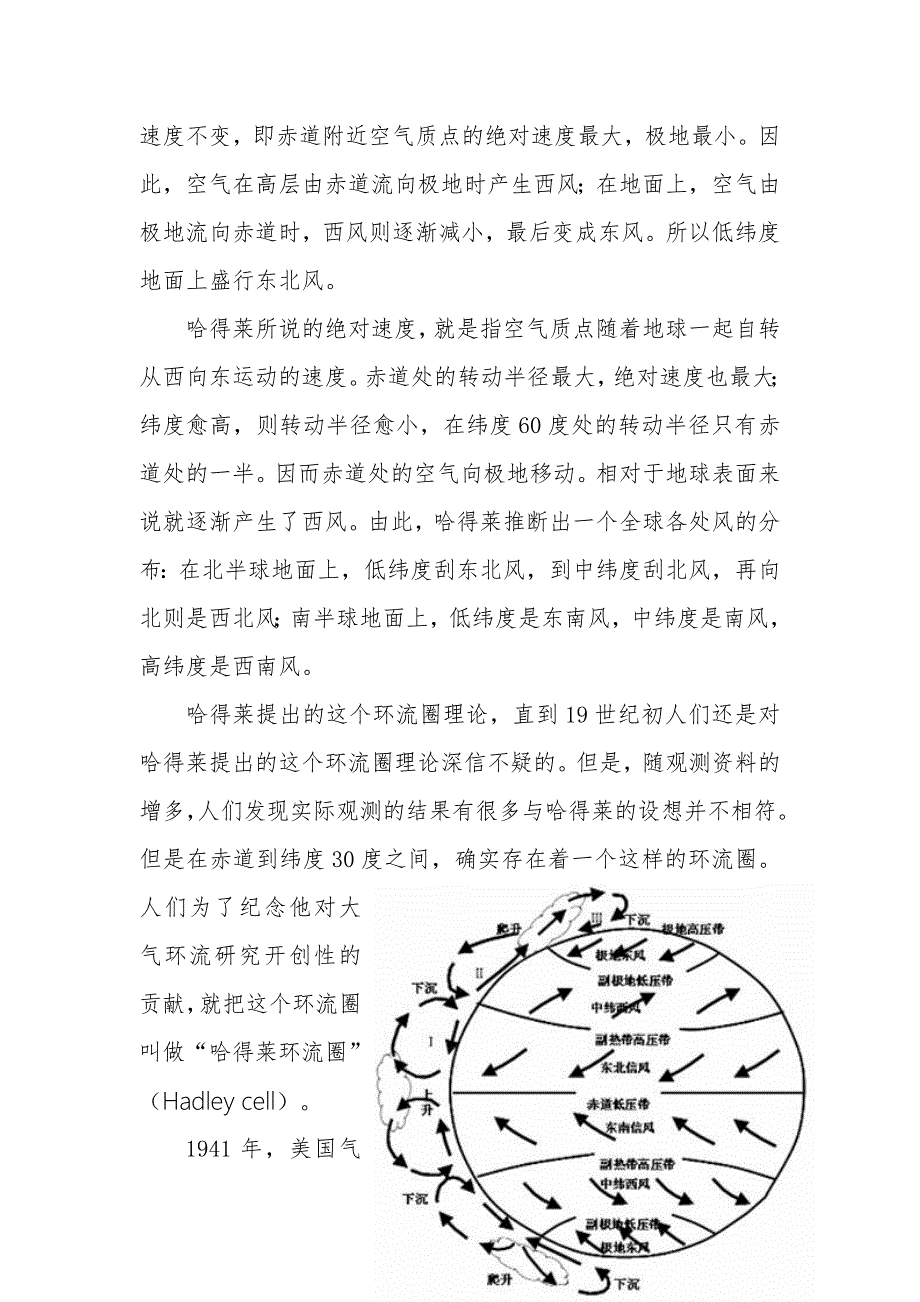 速度不变，即赤道附近空气质点的绝对速度最大，极地最小。因
此，空气在高层由赤道流向极地时产生西风；在地面上，空气由
极地流向赤道时，西风则逐渐减小，最后变成东风。所以低纬度
地面上盛行东北风。
哈得莱所说的绝对速度，就是指空气质点随着地球一起自转
从西向东运动的速度。赤道处的转动半径最大，绝对速度也最大；
纬度愈高，则转动半径愈小，在纬度 60 度处的转动半径只有赤
道处的一半。因而赤道处的空气向极地移动。相对于地球表面来
说就逐渐产生了西风。由此，哈得莱推断出一个全球各处风的分
布：在北半球地面上，低纬度刮东北风，到中纬度刮北风，再向
北则是西北风；南半球地面上，低纬度是东南风，中纬度是南风，
高纬度是西南风。
哈得莱提出的这个环流圈理论，直到 19 世纪初人们还是对
哈得莱提出的这个环流圈理论深信不疑的。但是，随观测资料的
增多，人们发现实际观测的结果有很多与哈得莱的设想并不相符。
但是在赤道到纬度 30 度之间，确实存在着一个这样的环流圈。
人们为了纪念他对大
气环流研究开创性的
贡献，就把这个环流圈
叫做“哈得莱环流圈”
（Hadley cell）。
1941 年，美国气
爬升
III
下沉
极地高压带
极地东风
II
下沉
副极地低压带
中纬西风
I
副热带高压带
东北信风
上升
赤道低压带
东南信风
副热带高压带
中纬西风
下沉
副极地低压带
极地东风
爬升
下沉